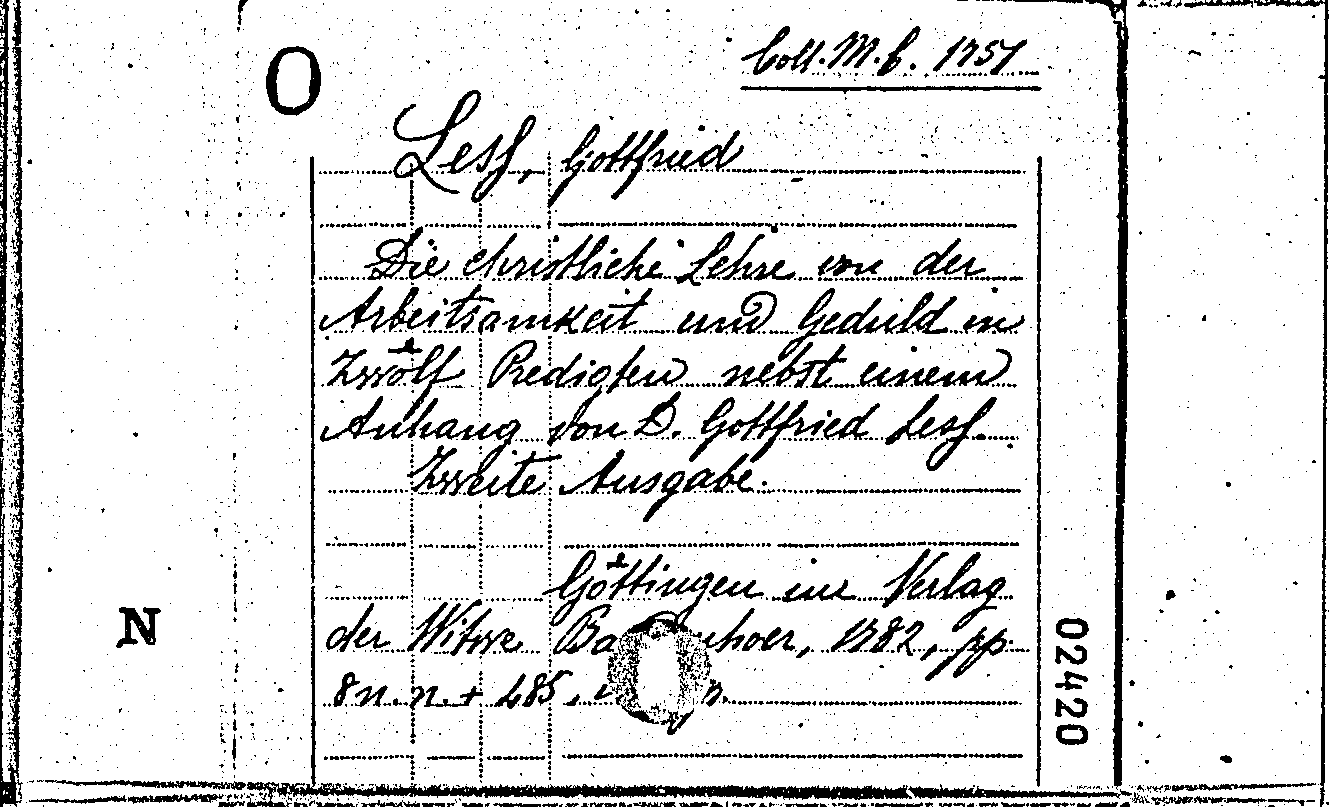 O
Coll. M. b. 1757
Less, Gottfried
Die christliche Lehre von der
Arbeitsamkeit und Geduld in
Zwölf Predigten nebst einem
Anhang von D. Gottfried Less.
Zweite Ausgabe.
Göttingen im Verlag
der Witwe 1782, pp.
8 n.n. + 485,
N
02420